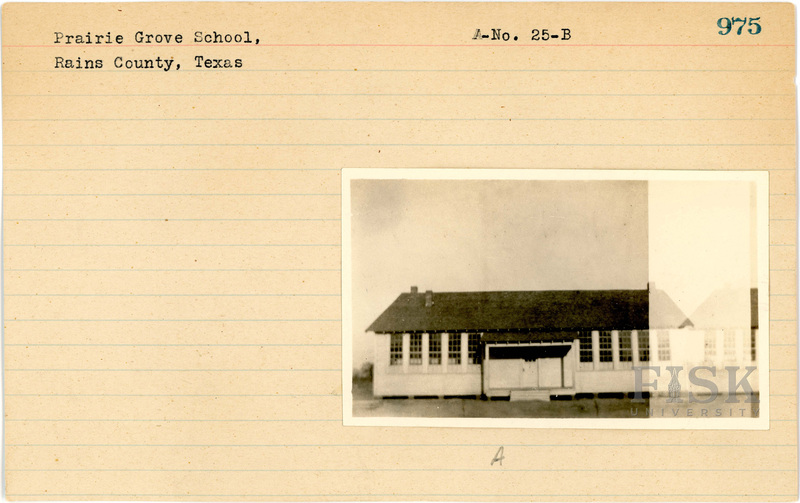 Prairie Grove School,
Rains County, Texas
A-No. 25-B
975
FISK
UNIVERSITY
A